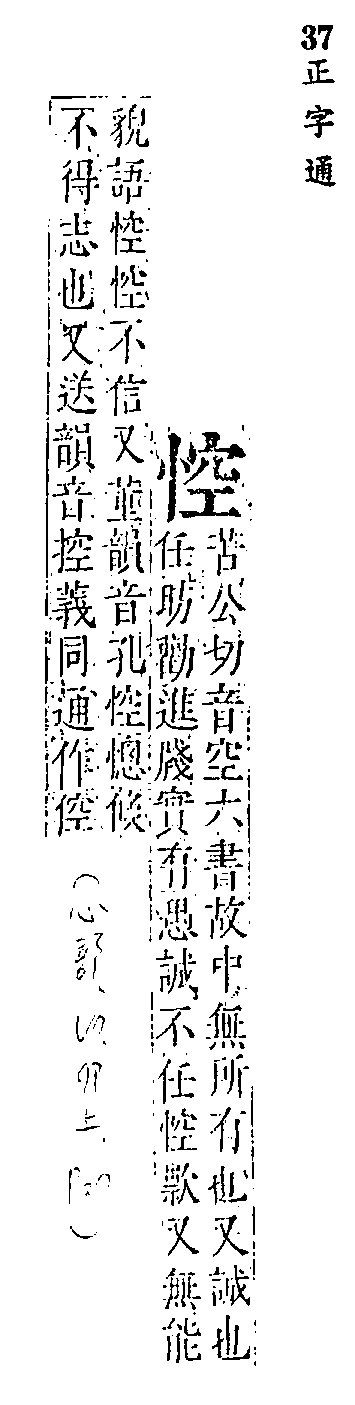 37 正字通
悾
苦公切音空六書故中無所有也又誠也
任昉勸進牋實有愚誠不任悾款又無能
貌語悾悾不信又董韻音孔悾憁倏
不得志也又送韻音控義同通作倥